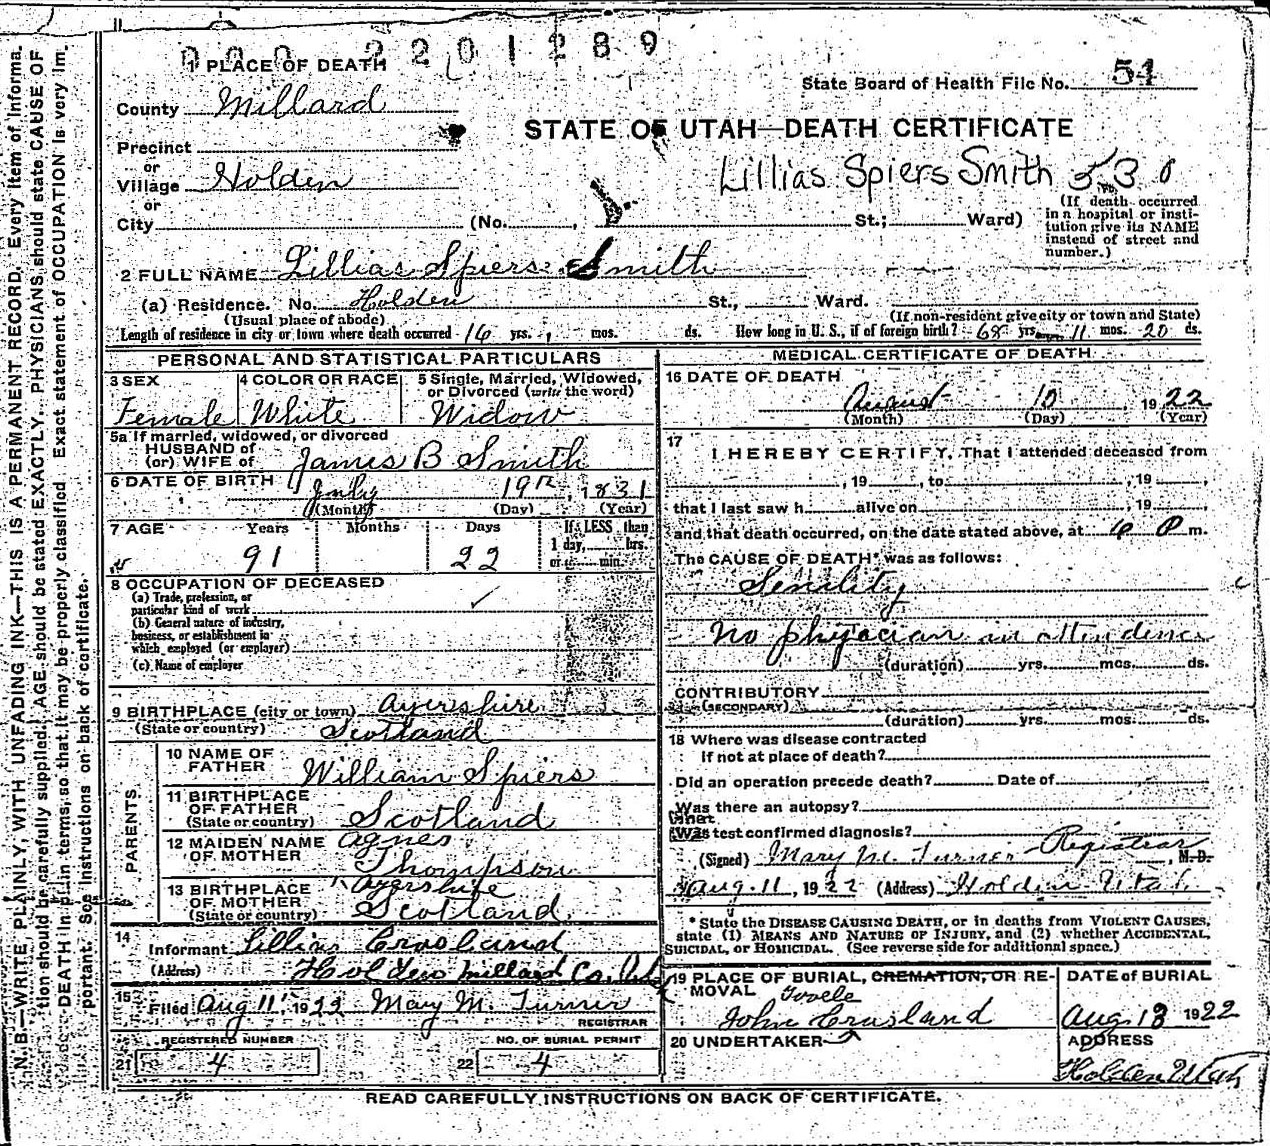 0 0 0 2 2 0 1 2 8 9
1 PLACE OF DEATH
State Board of Health File No. 51
County Millard
STATE OF UTAH—DEATH CERTIFICATE
Precinct
or
Village Holden
Lillias Spiers Smith 530
or
City (No. , St.; Ward)
(If death occurred
in a hospital or insti-
tution give its NAME
instead of street and
number.)
2 FULL NAME Lillias Spiers Smith
(a) Residence. No. Holden St., Ward.
(Usual place of abode) (If non-resident give city or town and State)
Length of residence in city or town where death occurred 16 yrs. mos. ds. How long in U. S., if of foreign birth? 68 yrs. 11 mos. 20 ds.
PERSONAL AND STATISTICAL PARTICULARS
3 SEX
Female
4 COLOR OR RACE
White
5 Single, Married, Widowed,
or Divorced (write the word)
Widow
5a If married, widowed, or divorced
HUSBAND of
(or) WIFE of James B Smith
6 DATE OF BIRTH July 19th, 1831
(Month) (Day) (Year)
7 AGE Years Months Days If LESS than
1 day, hrs.
or min.
91 22
8 OCCUPATION OF DECEASED
(a) Trade, profession, or
particular kind of work
(b) General nature of industry,
business, or establishment in
which employed (or employer)
(c) Name of employer
9 BIRTHPLACE (city or town) Ayershire
(State or country) Scotland
PARENTS
10 NAME OF
FATHER William Spiers
11 BIRTHPLACE
OF FATHER
(State or country) Scotland
12 MAIDEN NAME Agnes
OF MOTHER Thompson
13 BIRTHPLACE Ayershire
OF MOTHER
(State or country) Scotland
14
Informant Lillias Crosland
(Address) Holden Millard Co. Utah
15 Filed Aug 11, 1922 Mary M. Turner
REGISTRAR
REGISTERED NUMBER NO. OF BURIAL PERMIT
21 4 22 4
MEDICAL CERTIFICATE OF DEATH
16 DATE OF DEATH
August 10 1922
(Month) (Day) (Year)
17
I HEREBY CERTIFY, That I attended deceased from
, 19 , to , 19 ,
that I last saw h alive on , 19 ,
and that death occurred, on the date stated above, at 6 P m.
The CAUSE OF DEATH* was as follows:
Senility
No physician in attendence
(duration) yrs. mos. ds.
CONTRIBUTORY
(SECONDARY)
(duration) yrs. mos. ds.
18 Where was disease contracted
If not at place of death?
Did an operation precede death? Date of
Was there an autopsy?
What
Was test confirmed diagnosis?
(Signed) Mary M. Turner Registrar, M.D.
Aug. 11, 1922 (Address) Holden Utah.
* State the DISEASE CAUSING DEATH, or in deaths from VIOLENT CAUSES,
state (1) MEANS AND NATURE OF INJURY, and (2) whether ACCIDENTAL,
SUICIDAL, OR HOMICIDAL. (See reverse side for additional space.)
19 PLACE OF BURIAL, CREMATION, OR RE-
MOVAL Tooele
DATE of BURIAL
Aug. 13 1922
John Crosland
20 UNDERTAKER
ADDRESS
Holden Utah
READ CAREFULLY INSTRUCTIONS ON BACK OF CERTIFICATE.
N. B.—WRITE PLAINLY, WITH UNFADING INK—THIS IS A PERMANENT RECORD. Every item of informa-
tion should be carefully supplied. AGE should be stated EXACTLY. PHYSICIANS should state CAUSE OF
DEATH in plain terms, so that it may be properly classified. Exact statement of OCCUPATION is very im-
portant. See instructions on back of certificate.